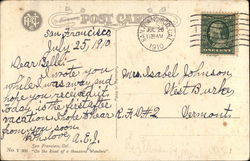 POST CARD
San Francisco
July 25, 1910.
Dear Belle:
I wrote you
while I was away and
hope you received it.
Today is the first after
vacation. Hope to hear
from you soon.
With love, A.E.J.
JUL 26
11 30 AM
1910
Mrs. Isabel Johnson,
West Burke,
R.F.D. #2
Vermont.
San Francisco, Cal.
"On the Road of a Thousand Wonders"